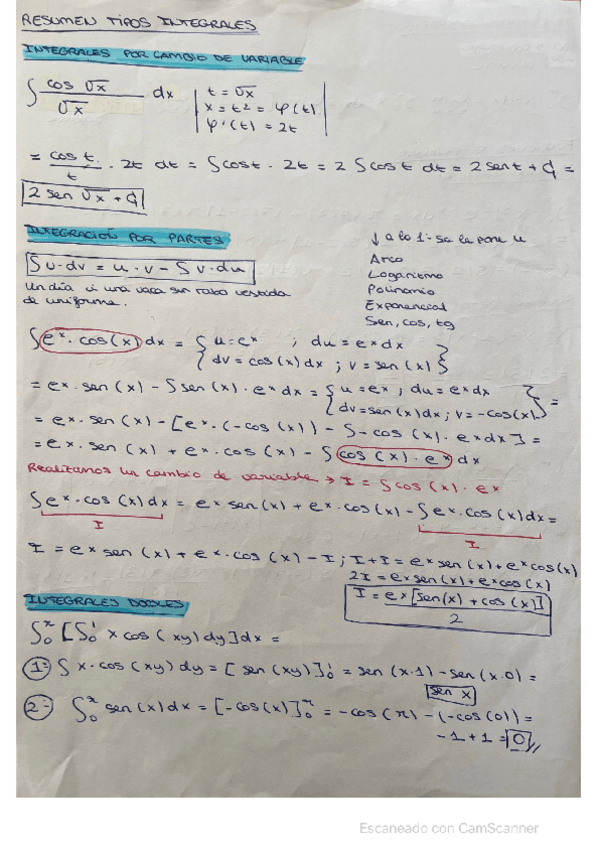 RESUMEN TIPOS INTEGRALES
INTEGRALES POR CAMBIO DE VARIABLE
∫ cos √x / √x dx | t = √x
x = t² = φ(t)
φ'(t) = 2t |
= cos t / t · 2t dt = ∫ cos t · 2t = 2 ∫ cos t dt = 2 sen t + C =
2 sen √x + C
INTEGRACIÓN POR PARTES
∫ u · dv = u · v - ∫ v · du
Un día vi una vaca sin rabo vestida
de uniforme.
↓ a lo 1º se le pone u
Arco
Logaritmo
Polinomio
Exponencial
Sen, cos, tg
∫ eˣ · cos(x) dx = { u = eˣ ; du = eˣ dx
dv = cos(x) dx ; v = sen(x) }
= eˣ · sen(x) - ∫ sen(x) · eˣ dx = { u = eˣ ; du = eˣ dx
dv = sen(x) dx ; v = -cos(x) } =
= eˣ · sen(x) - [eˣ · (-cos(x)) - ∫ -cos(x) · eˣ dx] =
= eˣ · sen(x) + eˣ · cos(x) - ∫ cos(x) · eˣ dx
Realizamos un cambio de variable → I = ∫ cos(x) · eˣ
∫ eˣ · cos(x) dx = eˣ sen(x) + eˣ · cos(x) - ∫ eˣ · cos(x) dx =
I I
I = eˣ sen(x) + eˣ · cos(x) - I ; I + I = eˣ sen(x) + eˣ cos(x)
2I = eˣ sen(x) + eˣ cos(x)
I = eˣ [sen(x) + cos(x)] / 2
INTEGRALES DOBLES
∫₀^π [∫₀¹ x cos(xy) dy] dx =
1º- ∫ x · cos(xy) dy = [sen(xy)]₀¹ = sen(x·1) - sen(x·0) =
sen x
2º- ∫₀^π sen(x) dx = [-cos(x)]₀^π = -cos(π) - (-cos(0)) =
-1 + 1 = 0
Escaneado con CamScanner